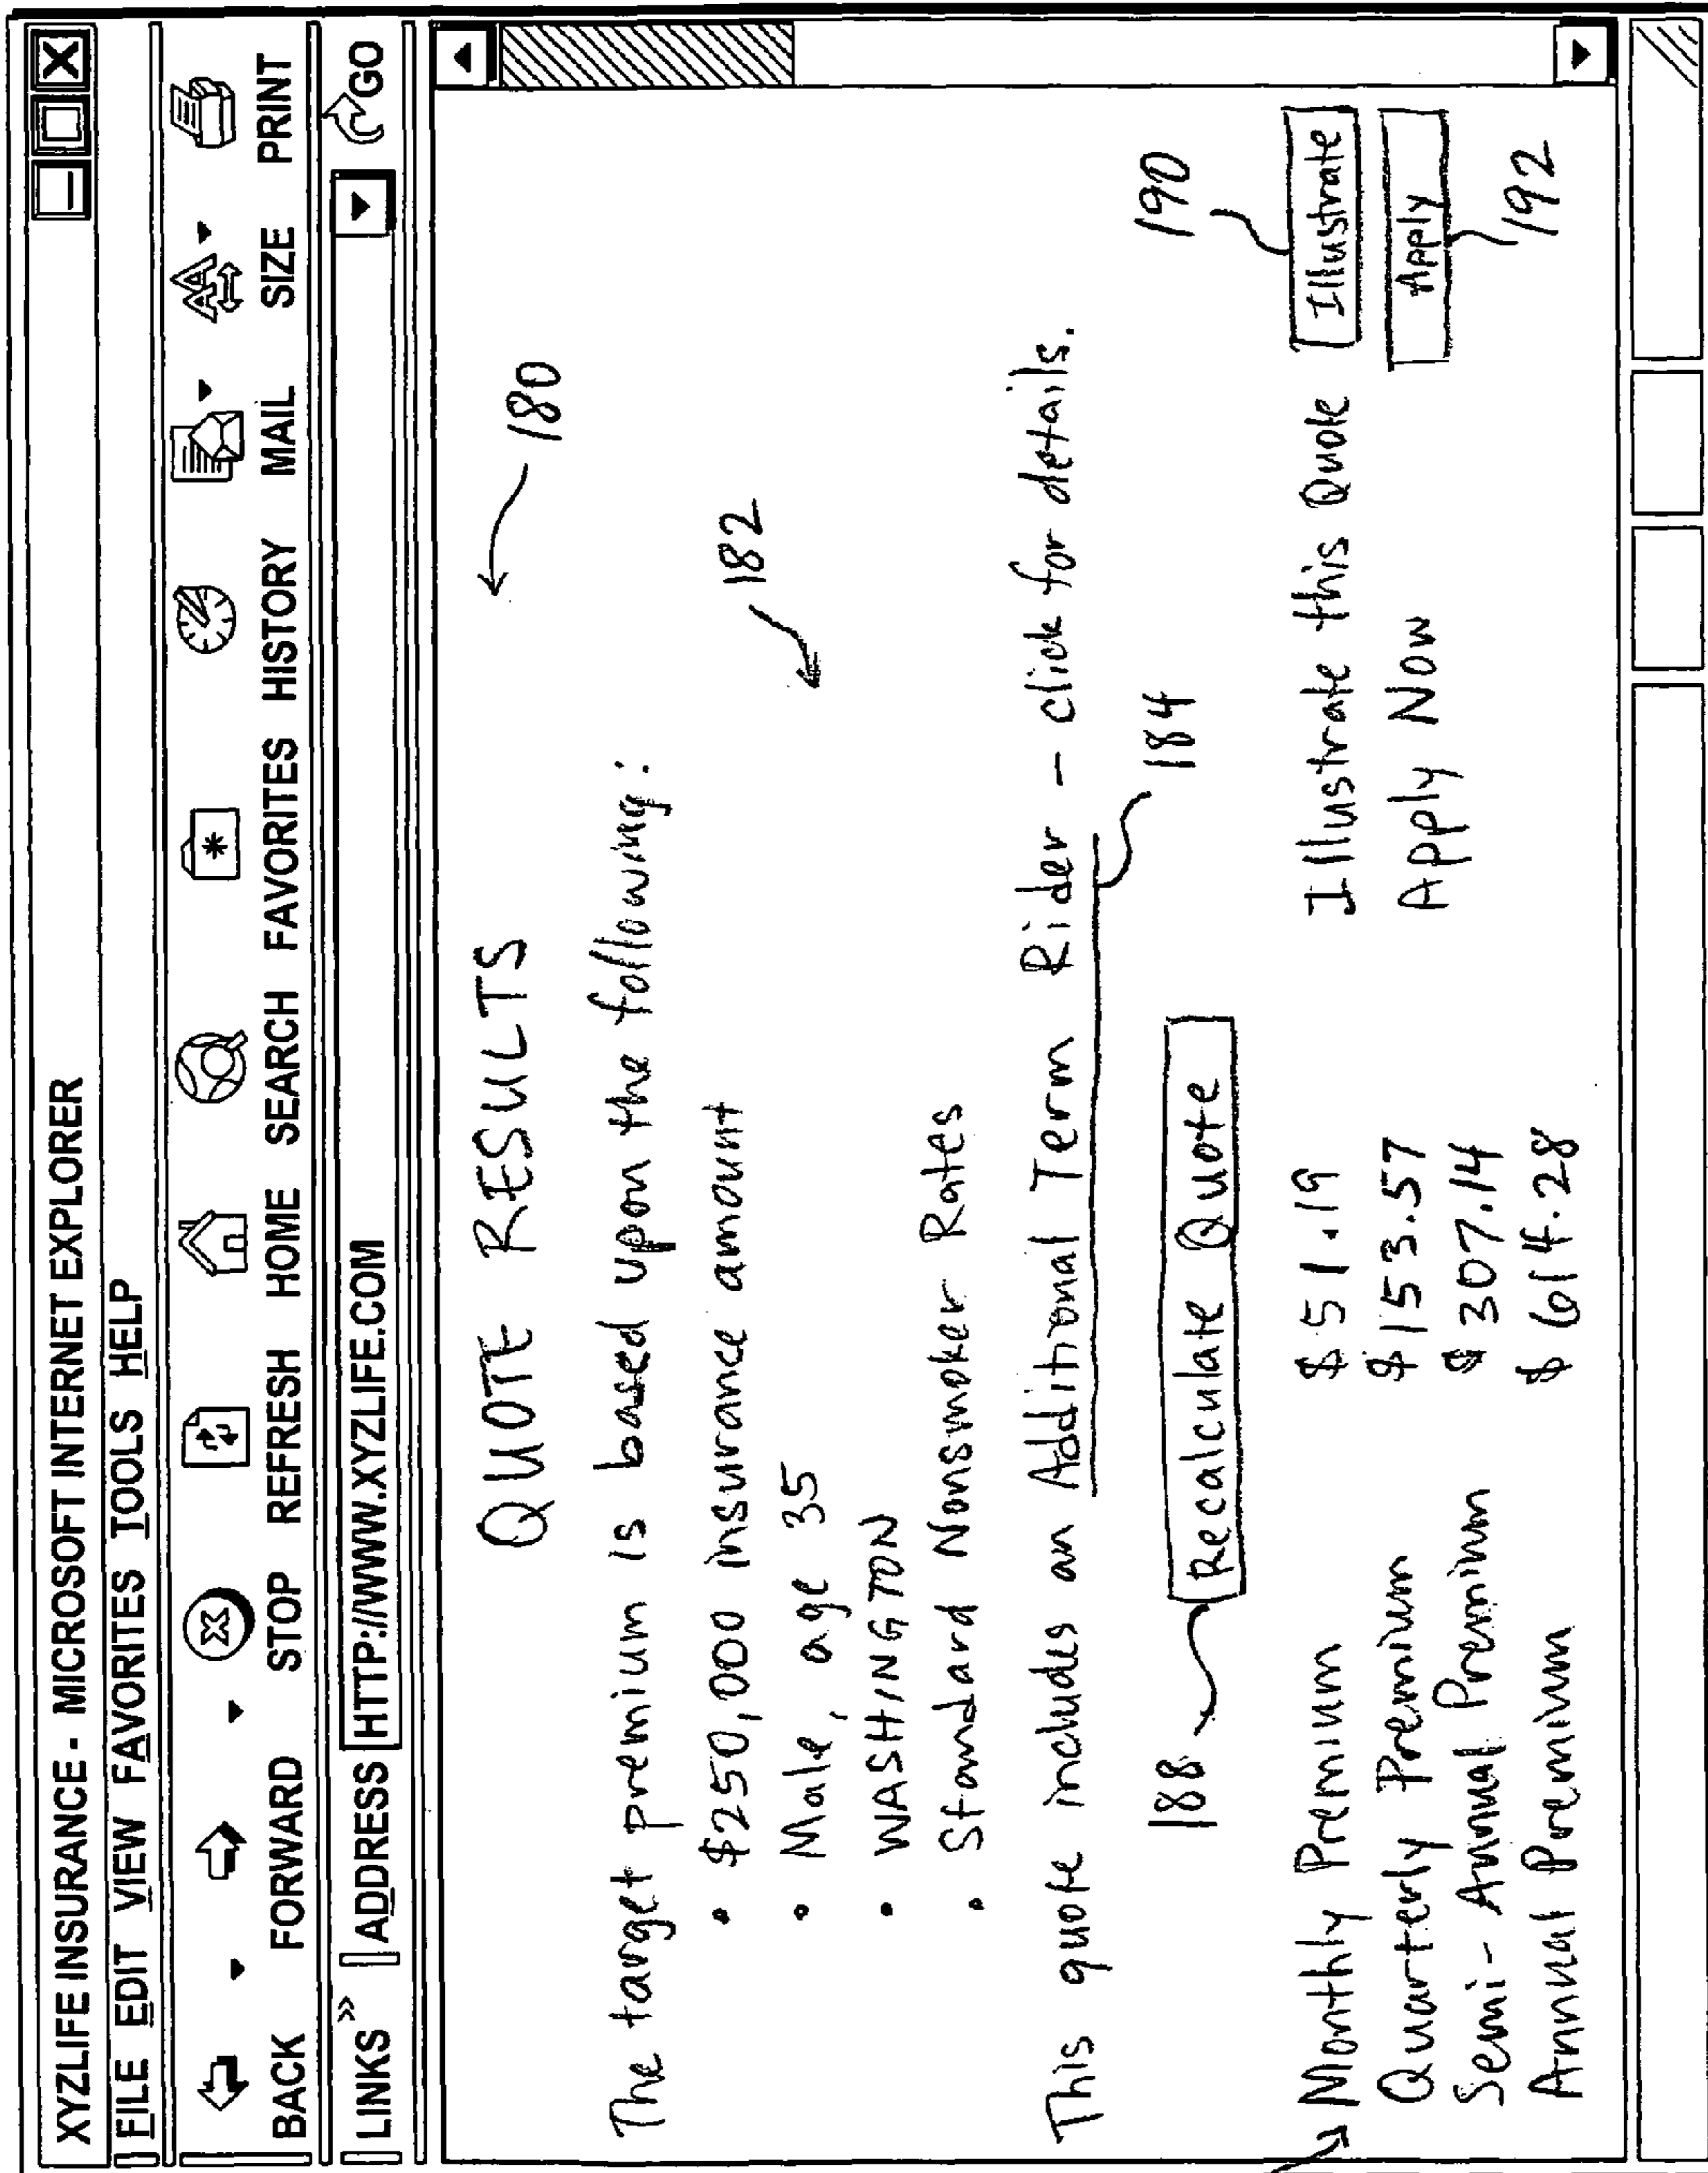 XYZLIFE INSURANCE - MICROSOFT INTERNET EXPLORER
FILE EDIT VIEW FAVORITES TOOLS HELP
BACK FORWARD STOP REFRESH HOME SEARCH FAVORITES HISTORY MAIL SIZE PRINT
LINKS » ADDRESS HTTP://WWW.XYZLIFE.COM GO
QUOTE RESULTS 180
The target premium is based upon the following:
• $250,000 insurance amount 182
• Male, age 35
• WASHINGTON
• Standard Nonsmoker Rates
This quote includes an Additional Term Rider - click for details.
184
188 Recalculate Quote 190
Monthly Premium $51.19 Illustrate this Quote Illustrate
Quarterly Premium $153.57 Apply Now Apply
Semi-Annual Premium $307.14
Annual Premium $614.28 192